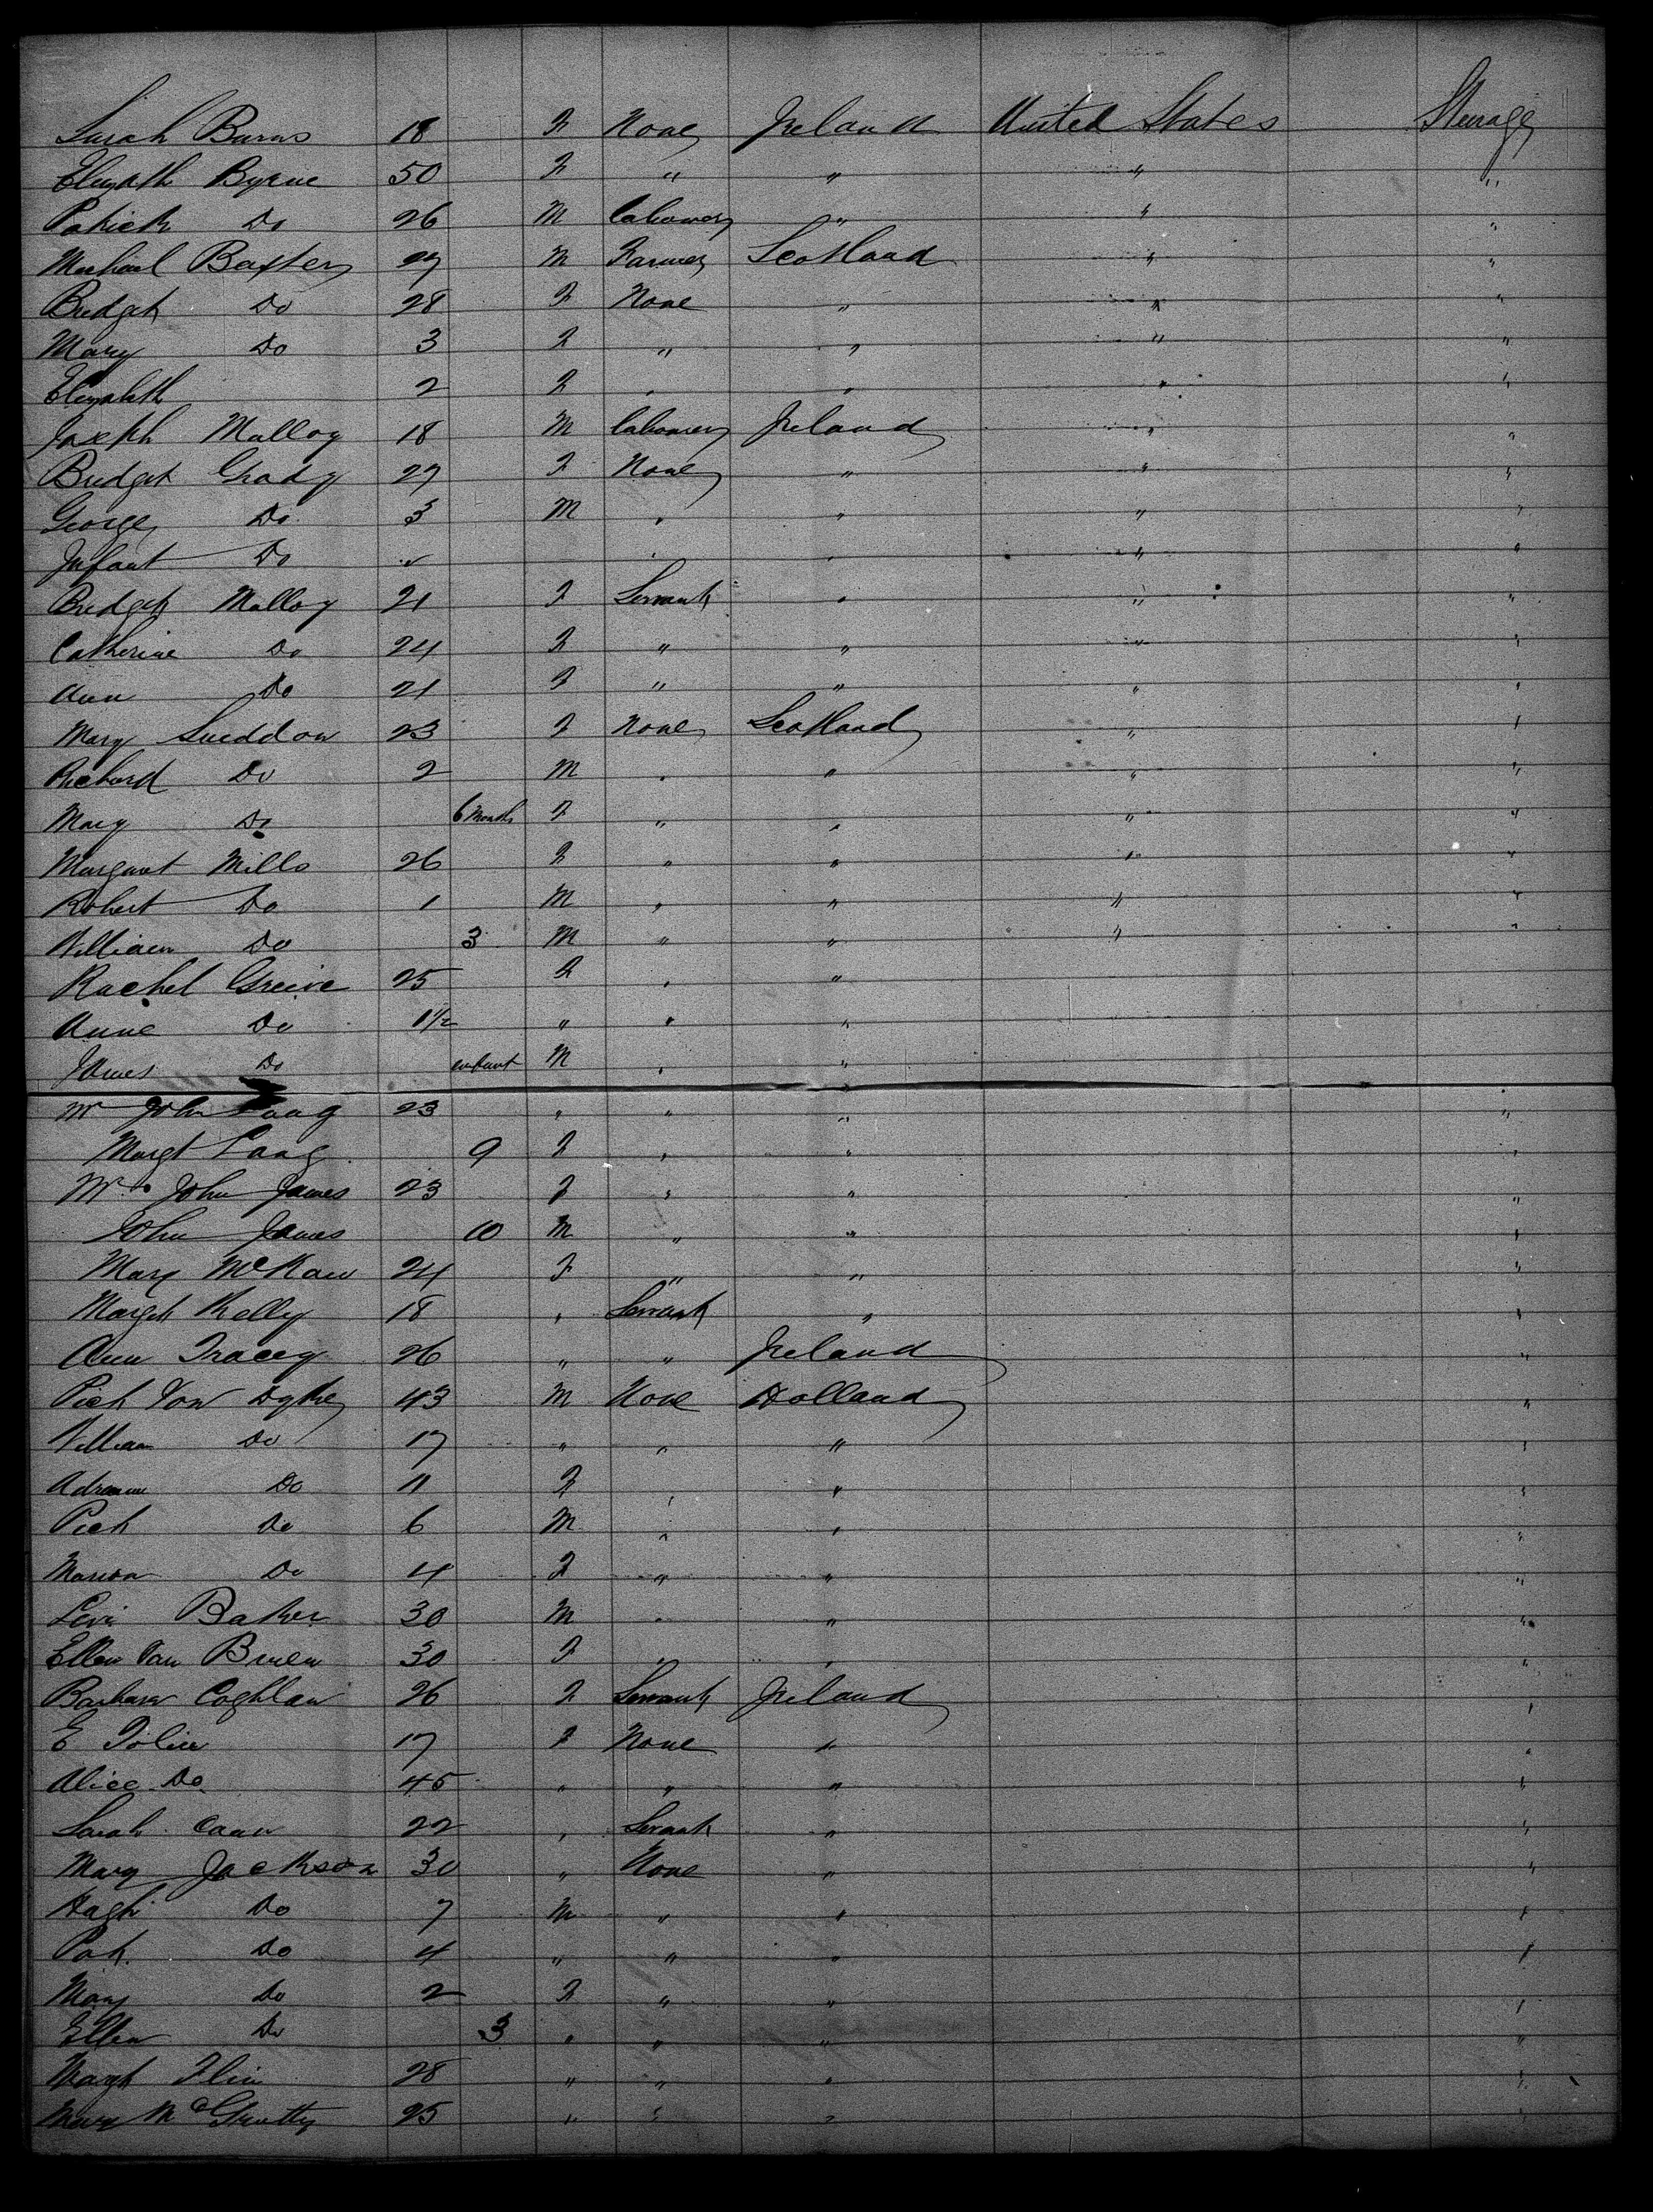 Sarah Burns 18 F None Ireland United States Steerage
Elizath Byrne 50 F " " " "
Patrick Do 26 M Labourer " " "
Michael Baxter 27 M Farmer Scotland " "
Bridget Do 28 F None " " "
Mary Do 3 F " " " "
Elizabeth 2 F " " " "
Joseph Malloy 18 M Labourer Ireland " "
Bridget Grady 27 F None " " "
George Do 3 M " " " "
Infant Do " " " " "
Bridget Malloy 21 F Servant " " "
Catherine Do 24 F " " " "
Ann Do 21 F " " " "
Mary Sneddon 23 F None Scotland " "
Richard Do 2 M " " " "
Mary Do 6 Months F " " " "
Margaret Mills 26 F " " " "
Robert Do 1 M " " " "
William Do 3 M " " " "
Rachel Greive 25 F " "
Anne Do 1½ " " "
James Do infant M " "
Mrs John Laag 23 " " " "
Margt Laag 9 F " " "
Mrs John James 23 F " " "
John James 10 M " " "
Mary McKaw 24 F " " "
Margt Kelly 18 " Servant " "
Ann Tracey 26 " " Ireland "
Piet Van Dyke 43 M None Holland "
William Do 17 " " " "
Do 11 F " " "
Piet Do 6 M " " "
Do 4 F " " "
Levi Baker 30 M " " "
Ellen Van Bruen 30 F " " "
Barbara Coghlan 26 F Servant Ireland "
E Tolin 17 F None " "
Alice Do 45 " " " "
Sarah Caan 22 " Servant " "
Mary Jackson 30 " None " "
Hugh Do 7 M " " "
Pat. Do 4 " " " "
Mary Do 2 F " " "
Ellen Do 3 " " " "
Margt Flin 28 " " " "
Mary 25 " " " "